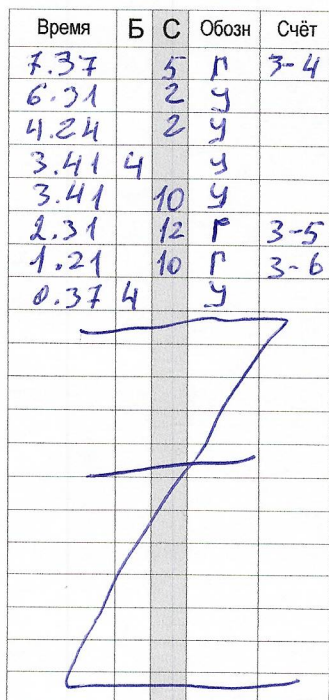 Время Б С Обозн Счёт
7.37 5 Г 3-4
6.31 2 У
4.24 2 У
3.41 4 У
3.41 10 У
2.31 12 Г 3-5
1.21 10 Г 3-6
0.37 4 У